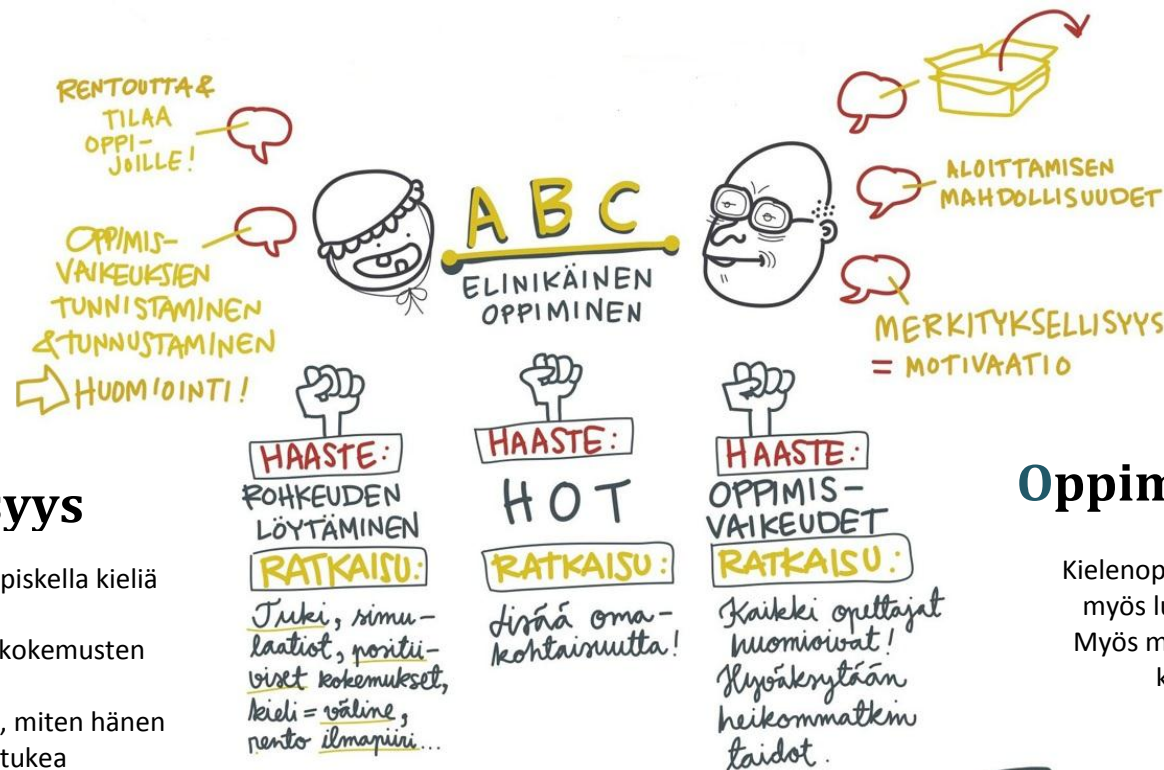 RENTOUTTA &
TILAA
OPPI-
JOILLE!
OPPIMIS-
VAIKEUKSIEN
TUNNISTAMINEN
& TUNNUSTAMINEN
HUOMIOINTI!
ABC
ELINIKÄINEN
OPPIMINEN
ALOITTAMISEN
MAHDOLLISUUDET
MERKITYKSELLISYYS
= MOTIVAATIO
HAASTE:
ROHKEUDEN
LÖYTÄMINEN
RATKAISU:
Tuki, simu-
laatiot, positii-
viset kokemukset,
kieli = väline,
rento ilmapiiri...
HAASTE:
HOT
RATKAISU:
Lisää oma-
kohtaisuutta!
HAASTE:
OPPIMIS-
VAIKEUDET
RATKAISU:
Kaikki opettajat
huomioivat!
Hyväksytään
heikommatkin
taidot.
syys
piskella kieliä
kokemusten
, miten hänen
tukea
Oppim
Kielenop
myös lu
Myös m
k